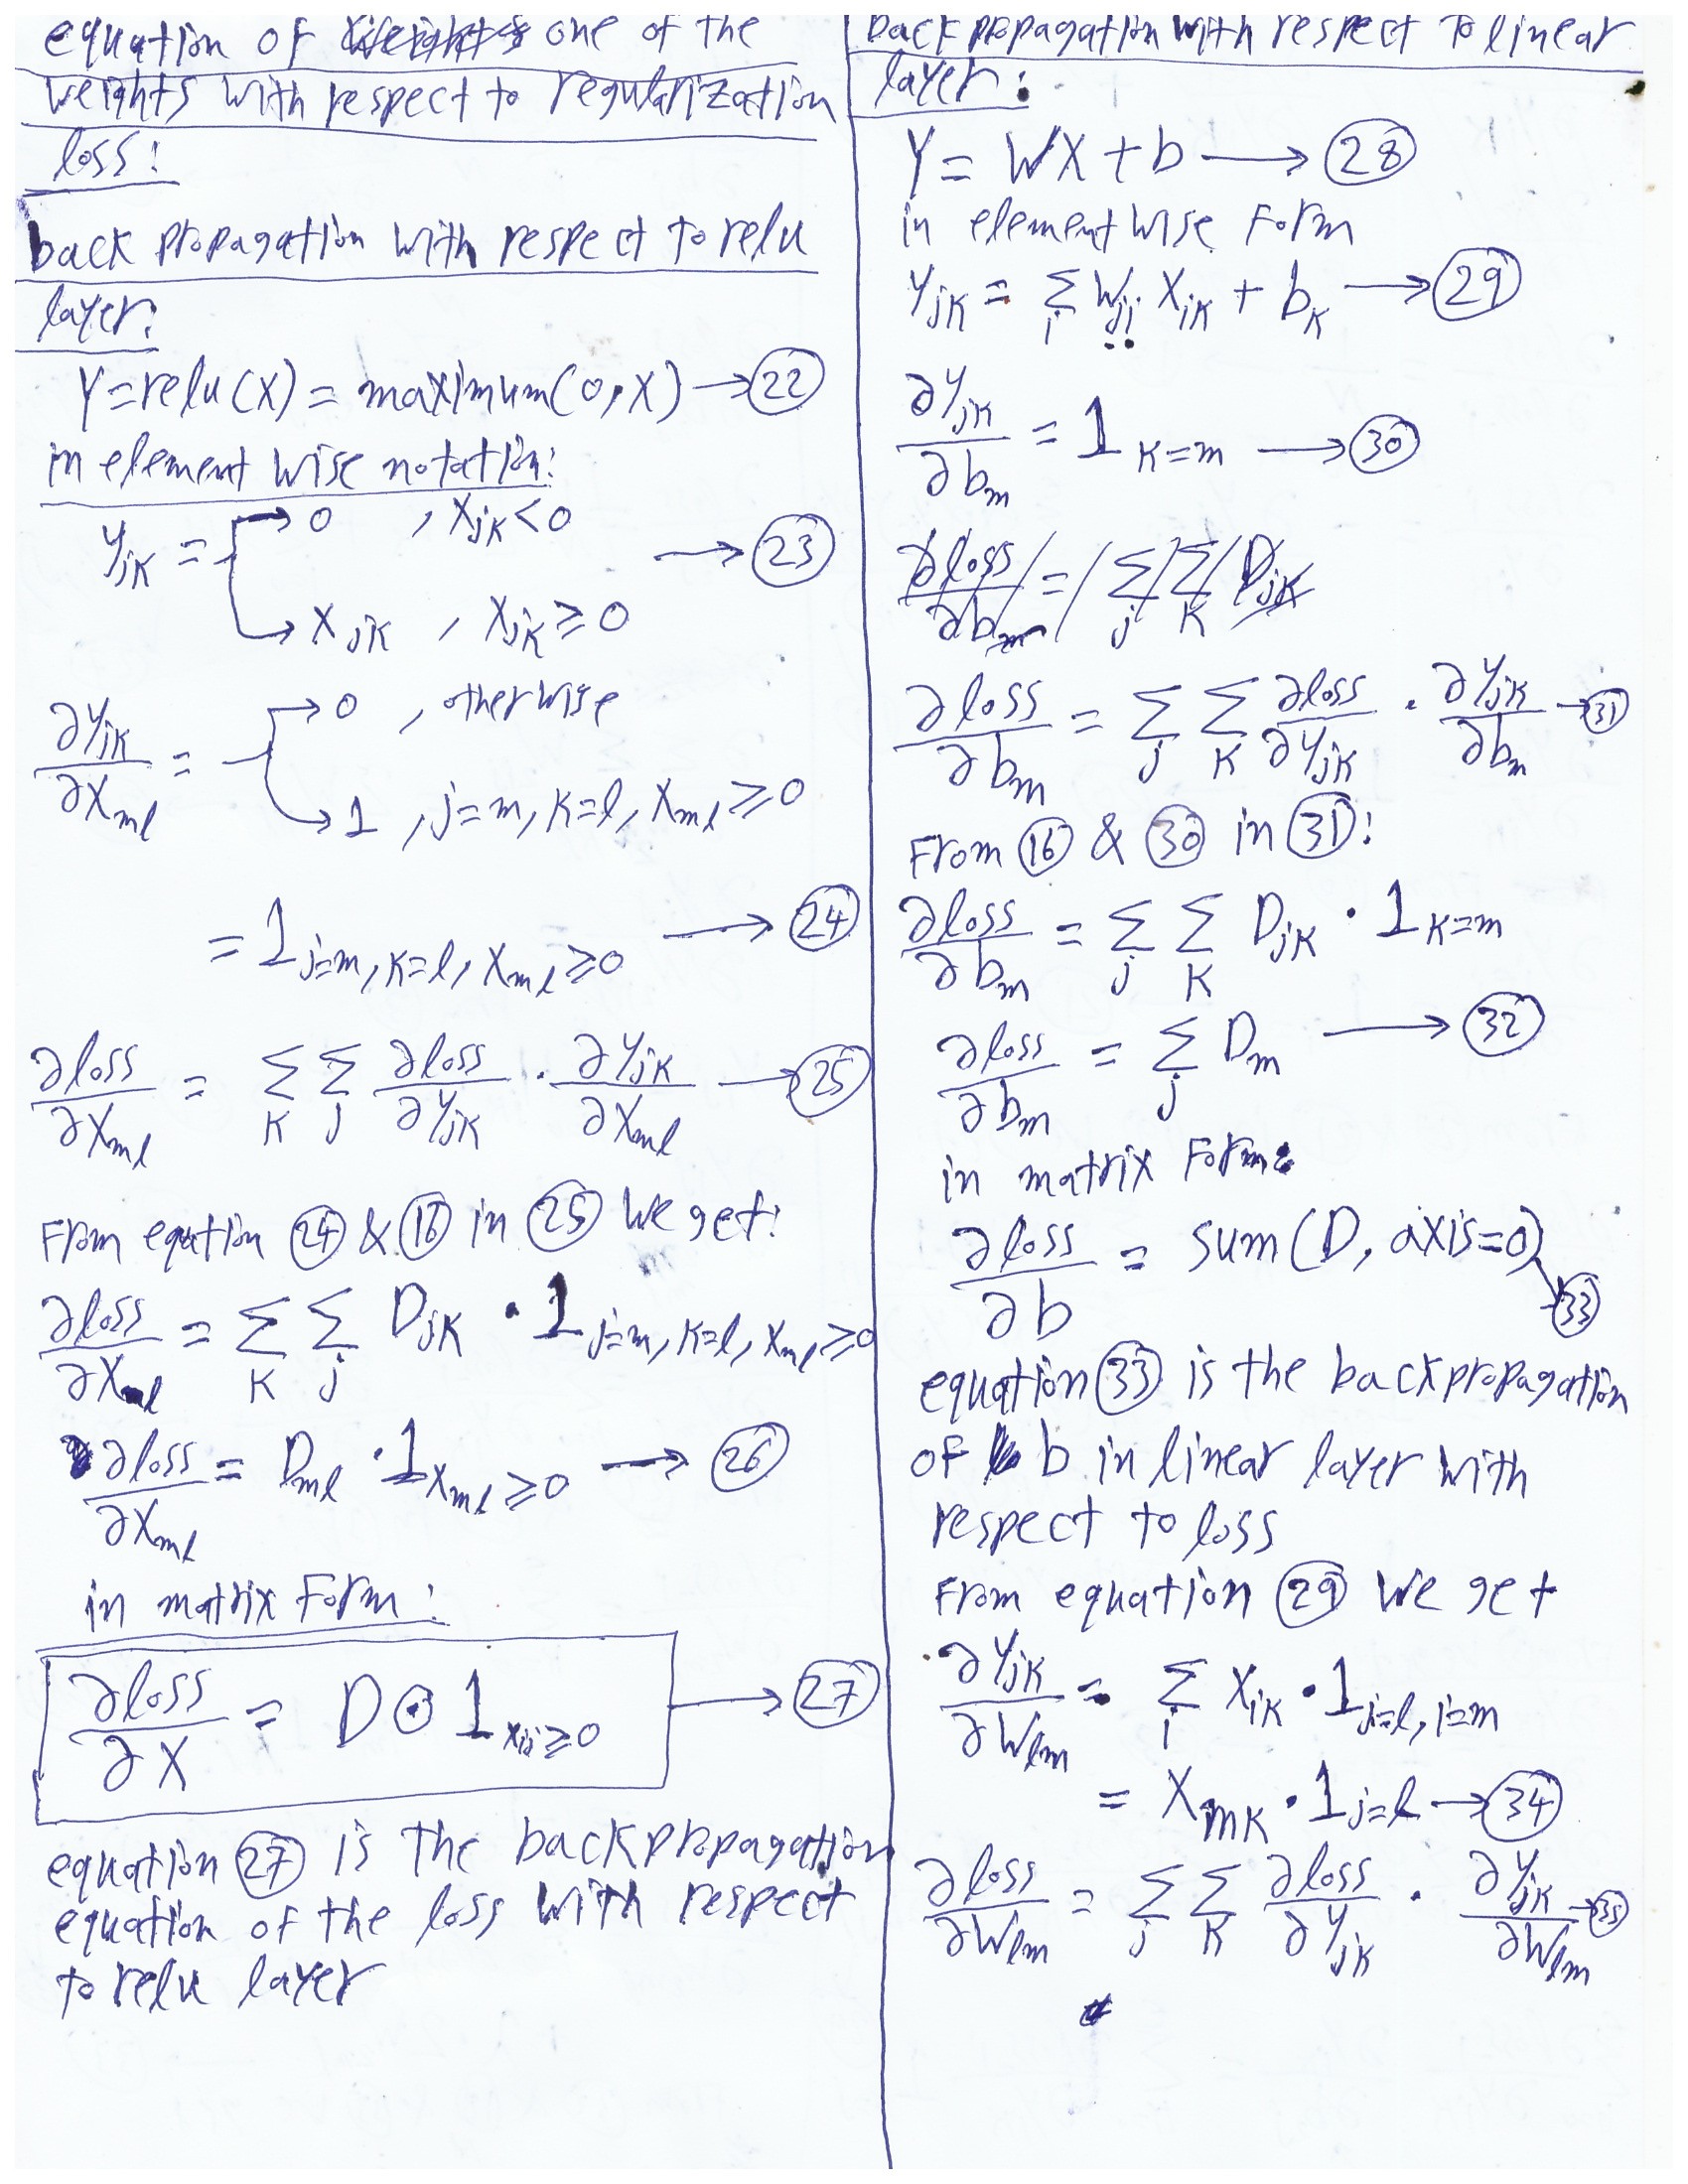 equation of one of the
weights with respect to regularization
loss:
back propagation with respect to relu
layer:
Y=relu(X) = maximum(0,X) → 22
in element wise notation:
y_jk = { → 0 , x_jk < 0
→ 23
→ x_jk , x_jk ≥ 0
∂y_jk/∂x_ml = { → 0 , otherwise
→ 1 , j=m, k=l, x_ml ≥ 0
= 1_{j=m, k=l, x_ml ≥ 0} → 24
∂loss/∂x_ml = Σ_k Σ_j ∂loss/∂y_jk · ∂y_jk/∂x_ml → 25
From equation 24 & 16 in 25 we get:
∂loss/∂x_ml = Σ_k Σ_j D_jk · 1_{j=m, k=l, x_ml ≥ 0}
∂loss/∂x_ml = D_ml · 1_{x_ml ≥ 0} → 26
in matrix form:
∂loss/∂X = D ⊙ 1_{x_ij ≥ 0} → 27
equation 27 is the backpropagation
equation of the loss with respect
to relu layer
back propagation with respect to linear
layer:
Y = WX + b → 28
in element wise form
y_jk = Σ_i w_ji x_ik + b_k → 29
∂y_jk/∂b_m = 1_{k=m} → 30
∂loss/∂b_m = Σ_j Σ_k D_jk
∂loss/∂b_m = Σ_j Σ_k ∂loss/∂y_jk · ∂y_jk/∂b_m → 31
From 16 & 30 in 31:
∂loss/∂b_m = Σ_j Σ_k D_jk · 1_{k=m}
∂loss/∂b_m = Σ_j D_m → 32
in matrix form:
∂loss/∂b = sum(D, axis=0) → 33
equation 33 is the backpropagation
of b in linear layer with
respect to loss
From equation 29 we get
∂y_jk/∂w_lm = Σ_i x_ik · 1_{j=l, i=m}
= x_mk · 1_{j=l} → 34
∂loss/∂w_lm = Σ_j Σ_k ∂loss/∂y_jk · ∂y_jk/∂w_lm → 35